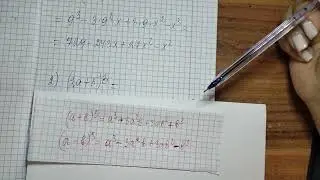 = 9³ - 3·9²x + 3·9·x² - x³ =
= 729 - 243x + 27x² - x³
2) (2a+b)³ =
(a+b)³ = a³ + 3a²b + 3ab² + b³
(a-b)³ = a³ - 3a²b + 3ab² - b³